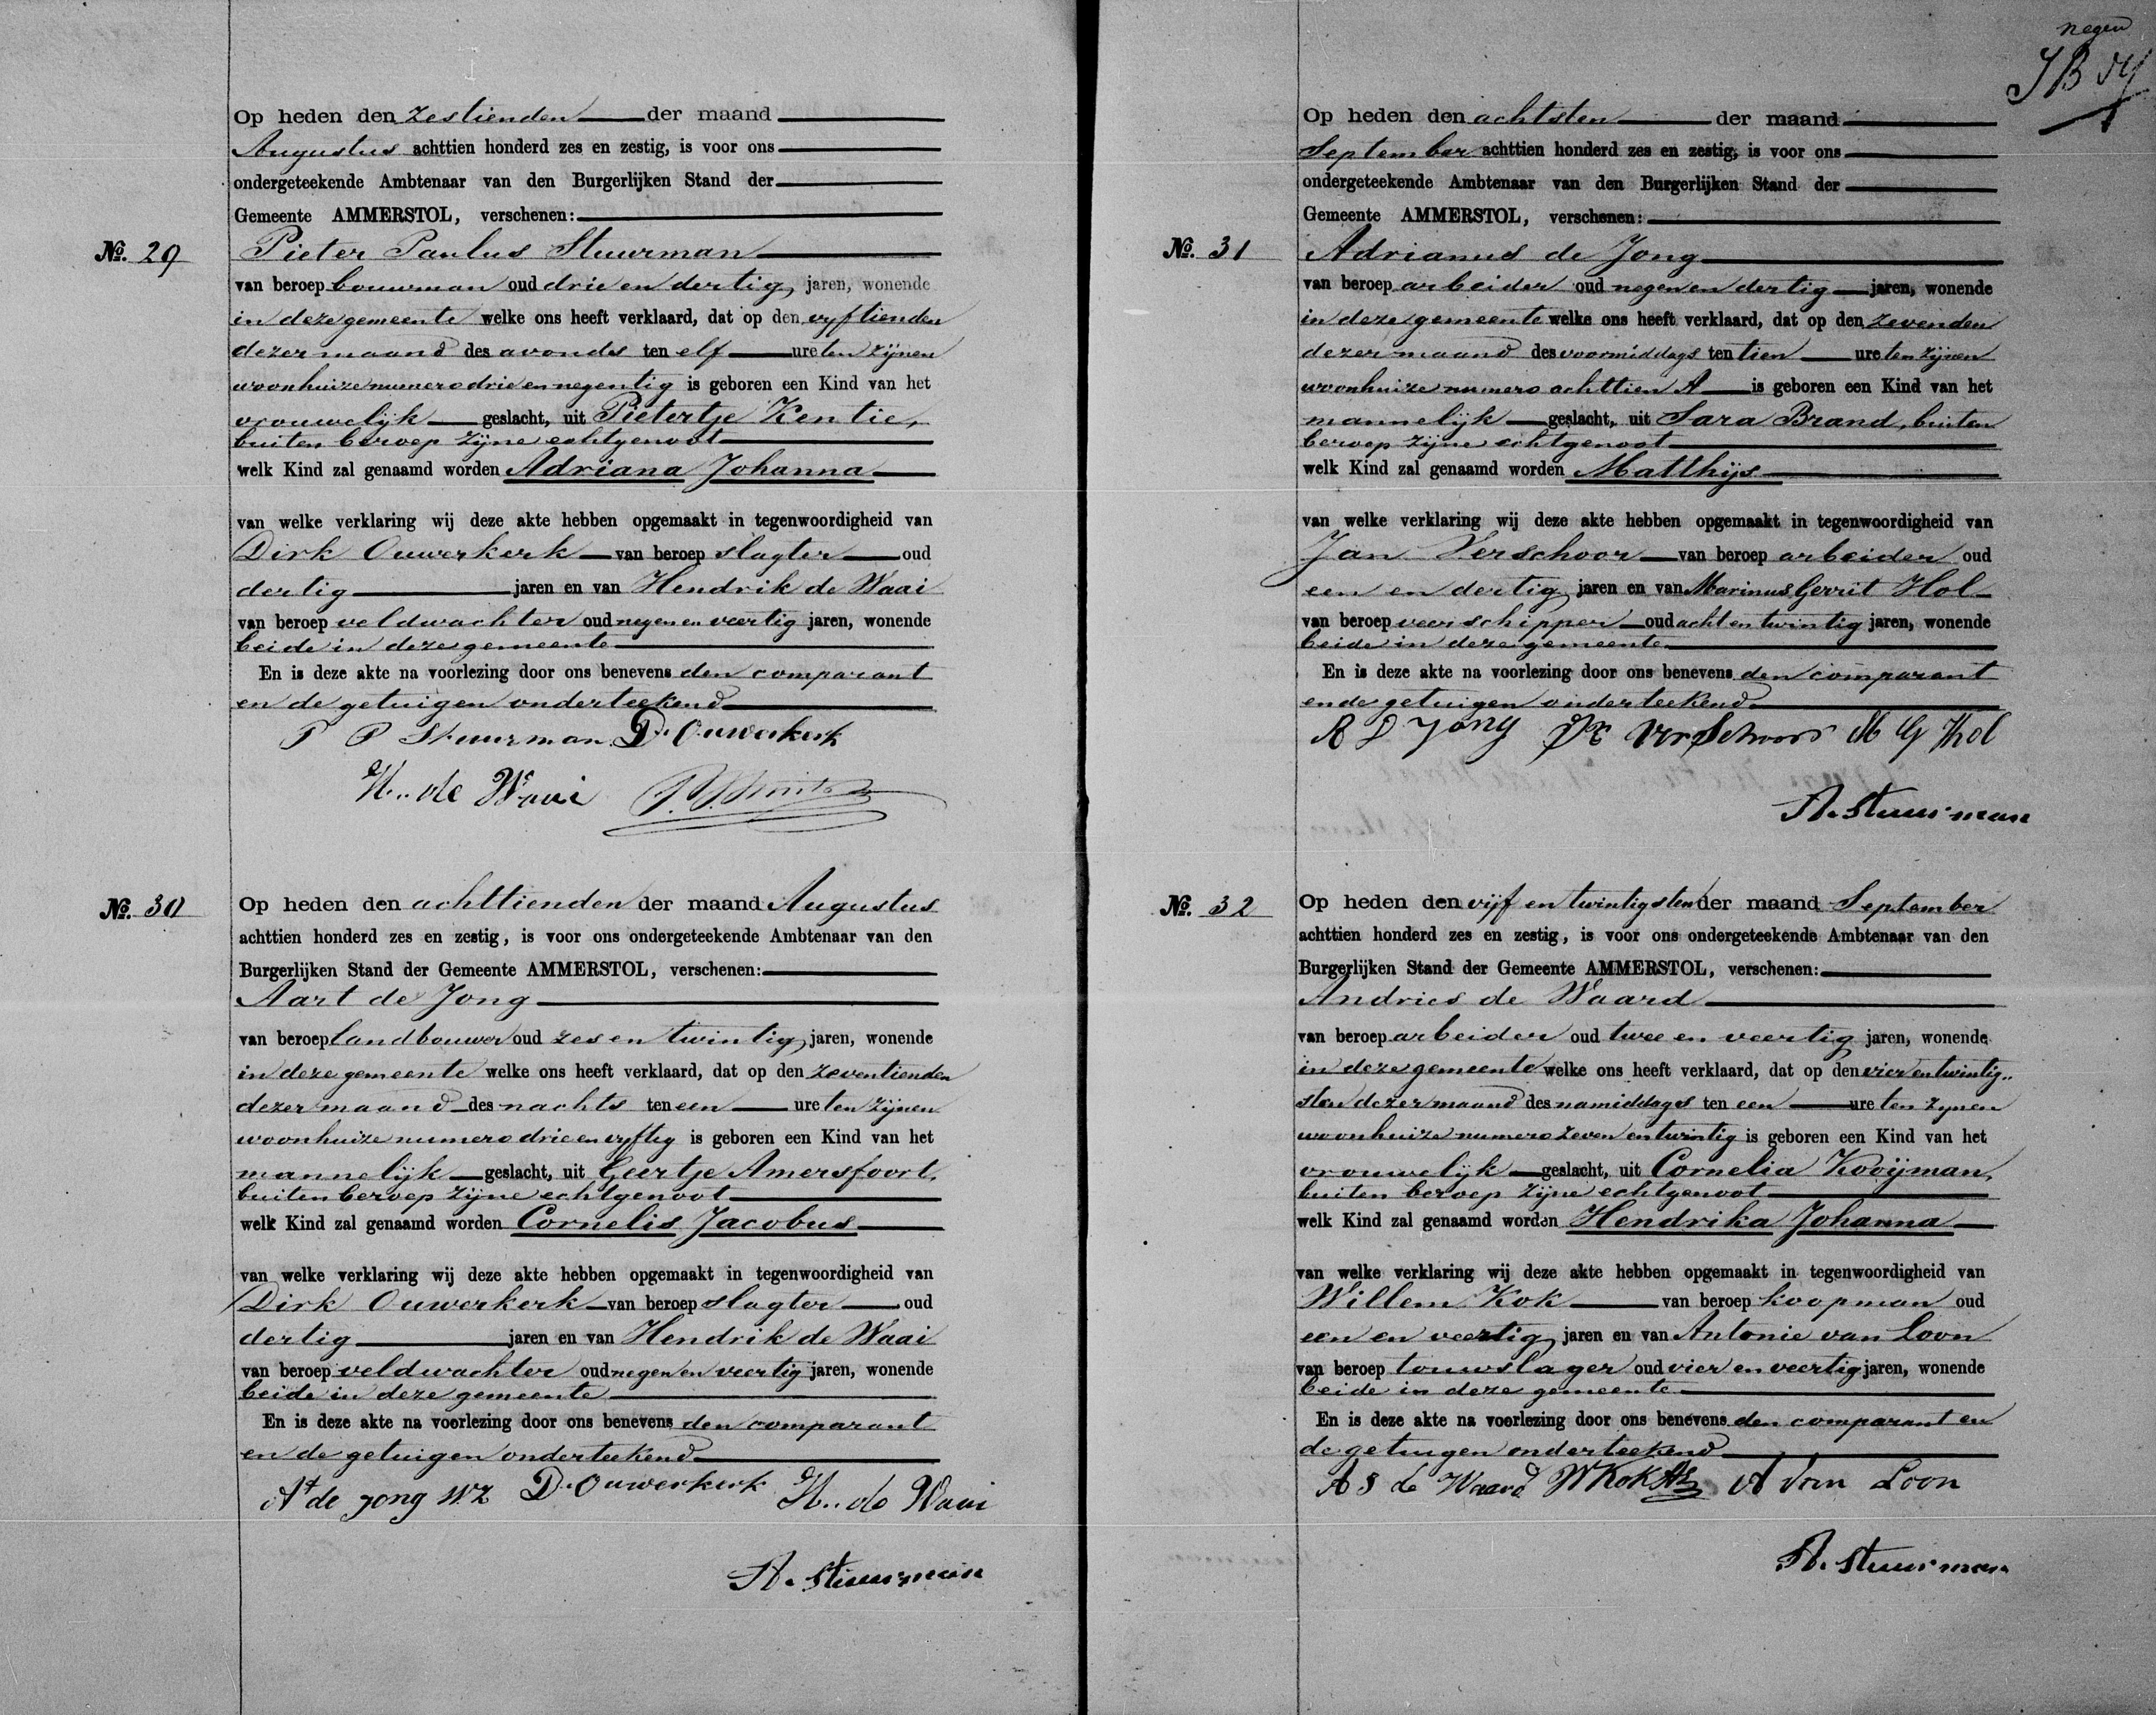 Op heden den zestienden der maand
Augustus achttien honderd zes en zestig, is voor ons
ondergeteekende Ambtenaar van den Burgerlijken Stand der
Gemeente AMMERSTOL, verschenen:
No. 29 Pieter Paulus Stuurman
van beroep bouwman oud drie en dertig jaren, wonende
in deze gemeente welke ons heeft verklaard, dat op den vyftienden
dezer maand des avonds ten elf ure ten zijnen
woonhuize numero drie en negentig is geboren een Kind van het
vrouwelyk geslacht, uit Pietertje Kentie,
buiten beroep zijne echtgenoot
welk Kind zal genaamd worden Adriana Johanna
van welke verklaring wij deze akte hebben opgemaakt in tegenwoordigheid van
Dirk Ouwerkerk van beroep slagter oud
dertig jaren en van Hendrik de Waai
van beroep veldwachter oud negen en veertig jaren, wonende
beide in deze gemeente
En is deze akte na voorlezing door ons benevens den comparant
en de getuigen onderteekend
P P Stuurman D. Ouwerkerk
H. de Waai
No. 30 Op heden den achttienden der maand Augustus
achttien honderd zes en zestig, is voor ons ondergeteekende Ambtenaar van den
Burgerlijken Stand der Gemeente AMMERSTOL, verschenen:
Aart de Jong
van beroep landbouwer oud zes en twintig jaren, wonende
in deze gemeente welke ons heeft verklaard, dat op den zeventienden
dezer maand des nachts ten een ure ten zijnen
woonhuize numero drie en vyftig is geboren een Kind van het
mannelijk geslacht, uit Geertje Amersfoort,
buiten beroep zijne echtgenoot
welk Kind zal genaamd worden Cornelis Jacobus
van welke verklaring wij deze akte hebben opgemaakt in tegenwoordigheid van
Dirk Ouwerkerk van beroep slagter oud
dertig jaren en van Hendrik de Waai
van beroep veldwachter oud negen en veertig jaren, wonende
beide in deze gemeente
En is deze akte na voorlezing door ons benevens den comparant
en de getuigen onderteekend
At de Jong Wz D. Ouwerkerk H. de Waai
A. Stuurman
negen
Op heden den achtsten der maand
September achttien honderd zes en zestig, is voor ons
ondergeteekende Ambtenaar van den Burgerlijken Stand der
Gemeente AMMERSTOL, verschenen:
No. 31 Adrianus de Jong
van beroep arbeider oud negen en dertig jaren, wonende
in deze gemeente welke ons heeft verklaard, dat op den zevenden
dezer maand des voormiddags ten tien ure ten zijnen
woonhuize numero achttien A is geboren een Kind van het
mannelijk geslacht, uit Sara Brand, buiten
beroep zijne echtgenoot
welk Kind zal genaamd worden Matthijs
van welke verklaring wij deze akte hebben opgemaakt in tegenwoordigheid van
Jan Verschoor van beroep arbeider oud
een en dertig jaren en van Marinus Gerrit Hol
van beroep veerschipper oud acht en twintig jaren, wonende
beide in deze gemeente
En is deze akte na voorlezing door ons benevens den comparant
en de getuigen onderteekend
A D Jong Verschoor M G Hol
A. Stuurman
No. 32 Op heden den vijf en twintigsten der maand September
achttien honderd zes en zestig, is voor ons ondergeteekende Ambtenaar van den
Burgerlijken Stand der Gemeente AMMERSTOL, verschenen:
Andries de Waard
van beroep arbeider oud twee en veertig jaren, wonende
in deze gemeente welke ons heeft verklaard, dat op den vier en twintig„
sten dezer maand des namiddags ten een ure ten zynen
woonhuize numero zeven en twintig is geboren een Kind van het
vrouwelijk geslacht, uit Cornelia Kooijman,
buiten beroep zijne echtgenoot
welk Kind zal genaamd worden Hendrika Johanna
van welke verklaring wij deze akte hebben opgemaakt in tegenwoordigheid van
Willem Kok van beroep koopman oud
een en veertig jaren en van Antonie van Loon
van beroep touwslager oud vier en veertig jaren, wonende
beide in deze gemeente
En is deze akte na voorlezing door ons benevens den comparant en
de getuigen onderteekend
A S de Waard W Kok Az A van Loon
A. Stuurman